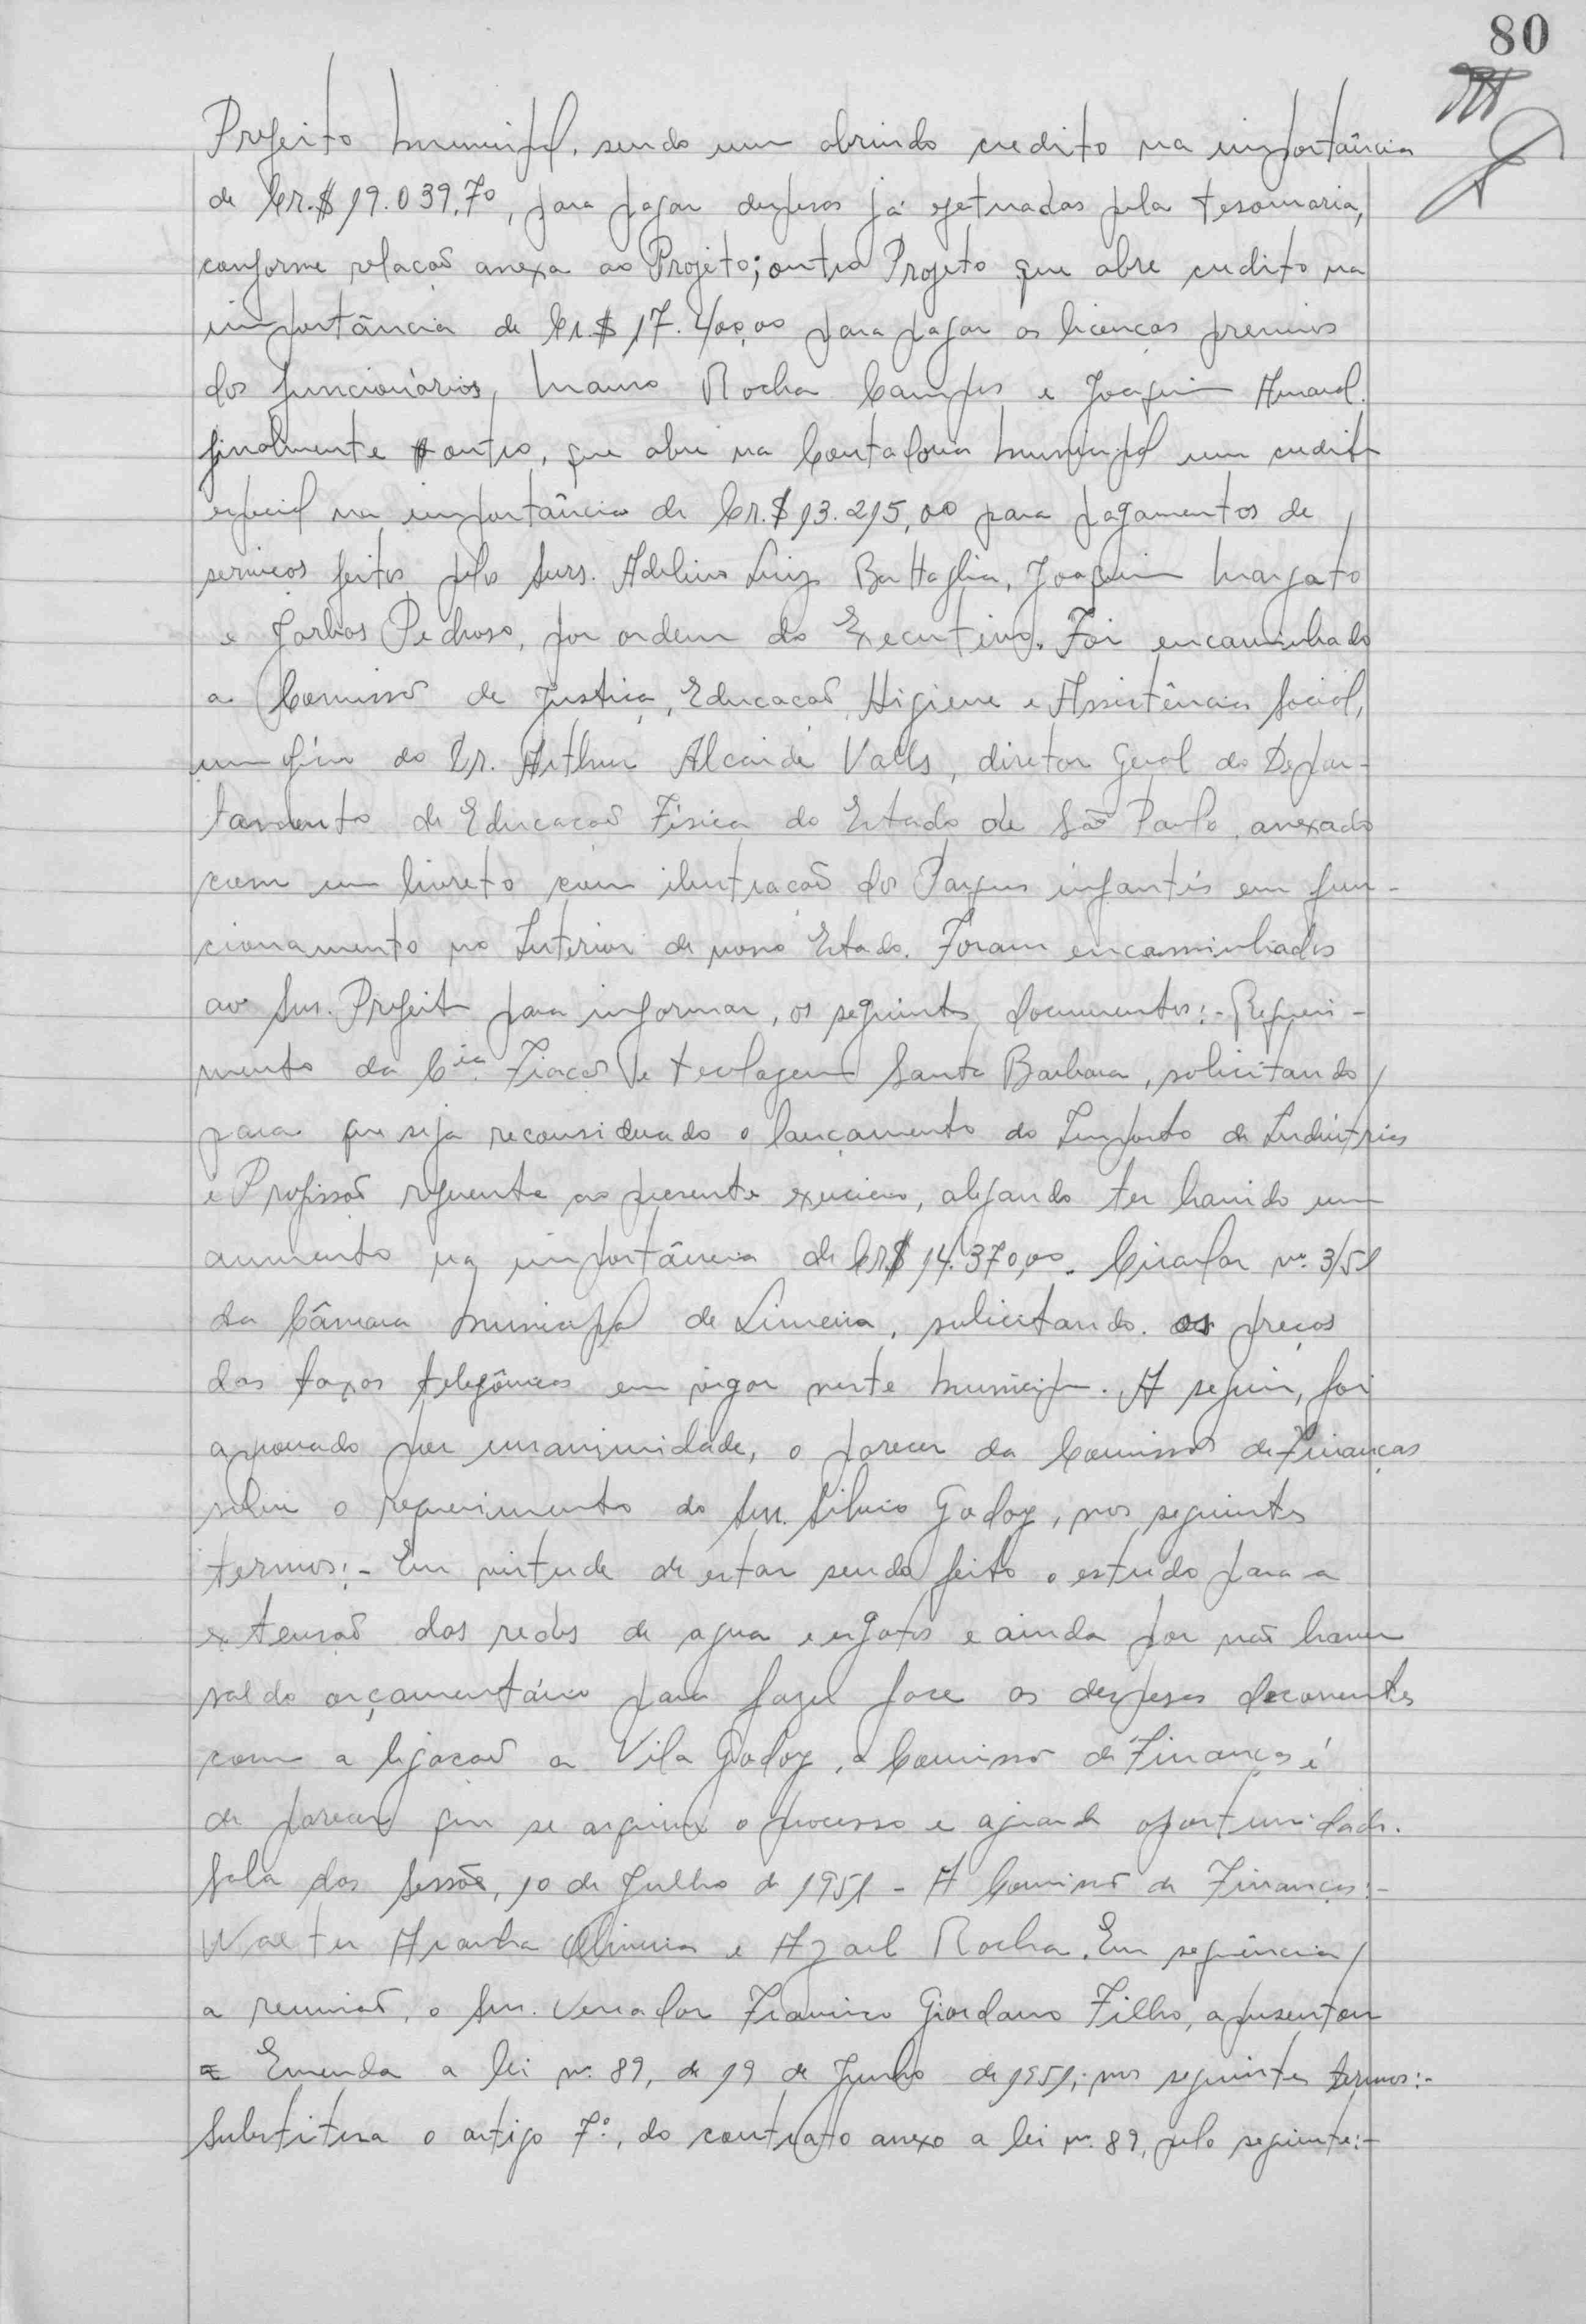 80
Prefeito Municipal, sendo um abrindo credito na importância
de Cr.$ 19.039,70, para pagar despesas já efetuadas pela tesouraria,
conforme relacaõ anexa ao Projeto; outro Projeto que abre credito na
importância de Cr.$ 17.400,00 para pagar as licencas premios
dos funcionários, Mauro Rocha Campos e Joaquim Amaral.
finalmente outro, que abre na Contadoria Municipal um credito
especial na importância de Cr.$ 13.215,00 para pagamentos de
servicos feitos pelos Surs. Adelino Luiz Battaglia, Joaquim Margato
e Jarbas Pedroso, por ordem do Executivo. Foi encaminhado
a Comissaõ de Justiça, Educacaõ, Higiene e Assistência Social,
um ofício do Dr. Arthur Alcaide Valls, diretor Geral do Depar-
tamento de Educacaõ Física do Estado de Saõ Paulo, anexado
com um livreto com ilustracaõ dos Parques infantís em fun-
cionamento no Interior de nosso Estado. Foram encaminhados
ao Snr. Prefeito para informar, os seguintes documentos:- Requeri-
mento da Cia. Fiacaõ e tecelagem Santa Barbara, solicitando
para que seja reconsiderado o lançamento do Imposto de Indústrias
e Profissaõ referente ao presente exercicio, alegando ter havido um
aumento na importância de Cr$ 14.370,00. Circular nº 3/51
da Câmara Municipal de Limeira, solicitando os preços
das taxas telefônicas em vigor neste Municipio. A seguir, foi
aprovado por unanimidade, o parecer da Comissaõ de Finanças
sobre o requerimento do Snr. Silvio Godoy, nos seguintes
termos:- Em virtude de estar sendo feito o estudo para a
extensaõ das redes de agua e esgotos e ainda por naõ haver
saldo orçamentário para fazer face as despesas decorrentes
com a ligacaõ a Vila Godoy, a Comissaõ de Finanças é
de parecer que se arquive o processo e aguarde oportunidade.
Sala das Sessões, 10 de Julho de 1951 - A Comissaõ de Finanças:-
Walter Aranha Oliveira e Azael Rocha. Em sequência
a reuniaõ, o Snr. Vereador Francisco Giordano Filho, apresentou
a Emenda a lei nº 89, de 19 de Junho de 1951, nos seguintes termos:-
Substitua o artigo 7º, do contrato anexo a lei nº 89, pelo seguinte:-